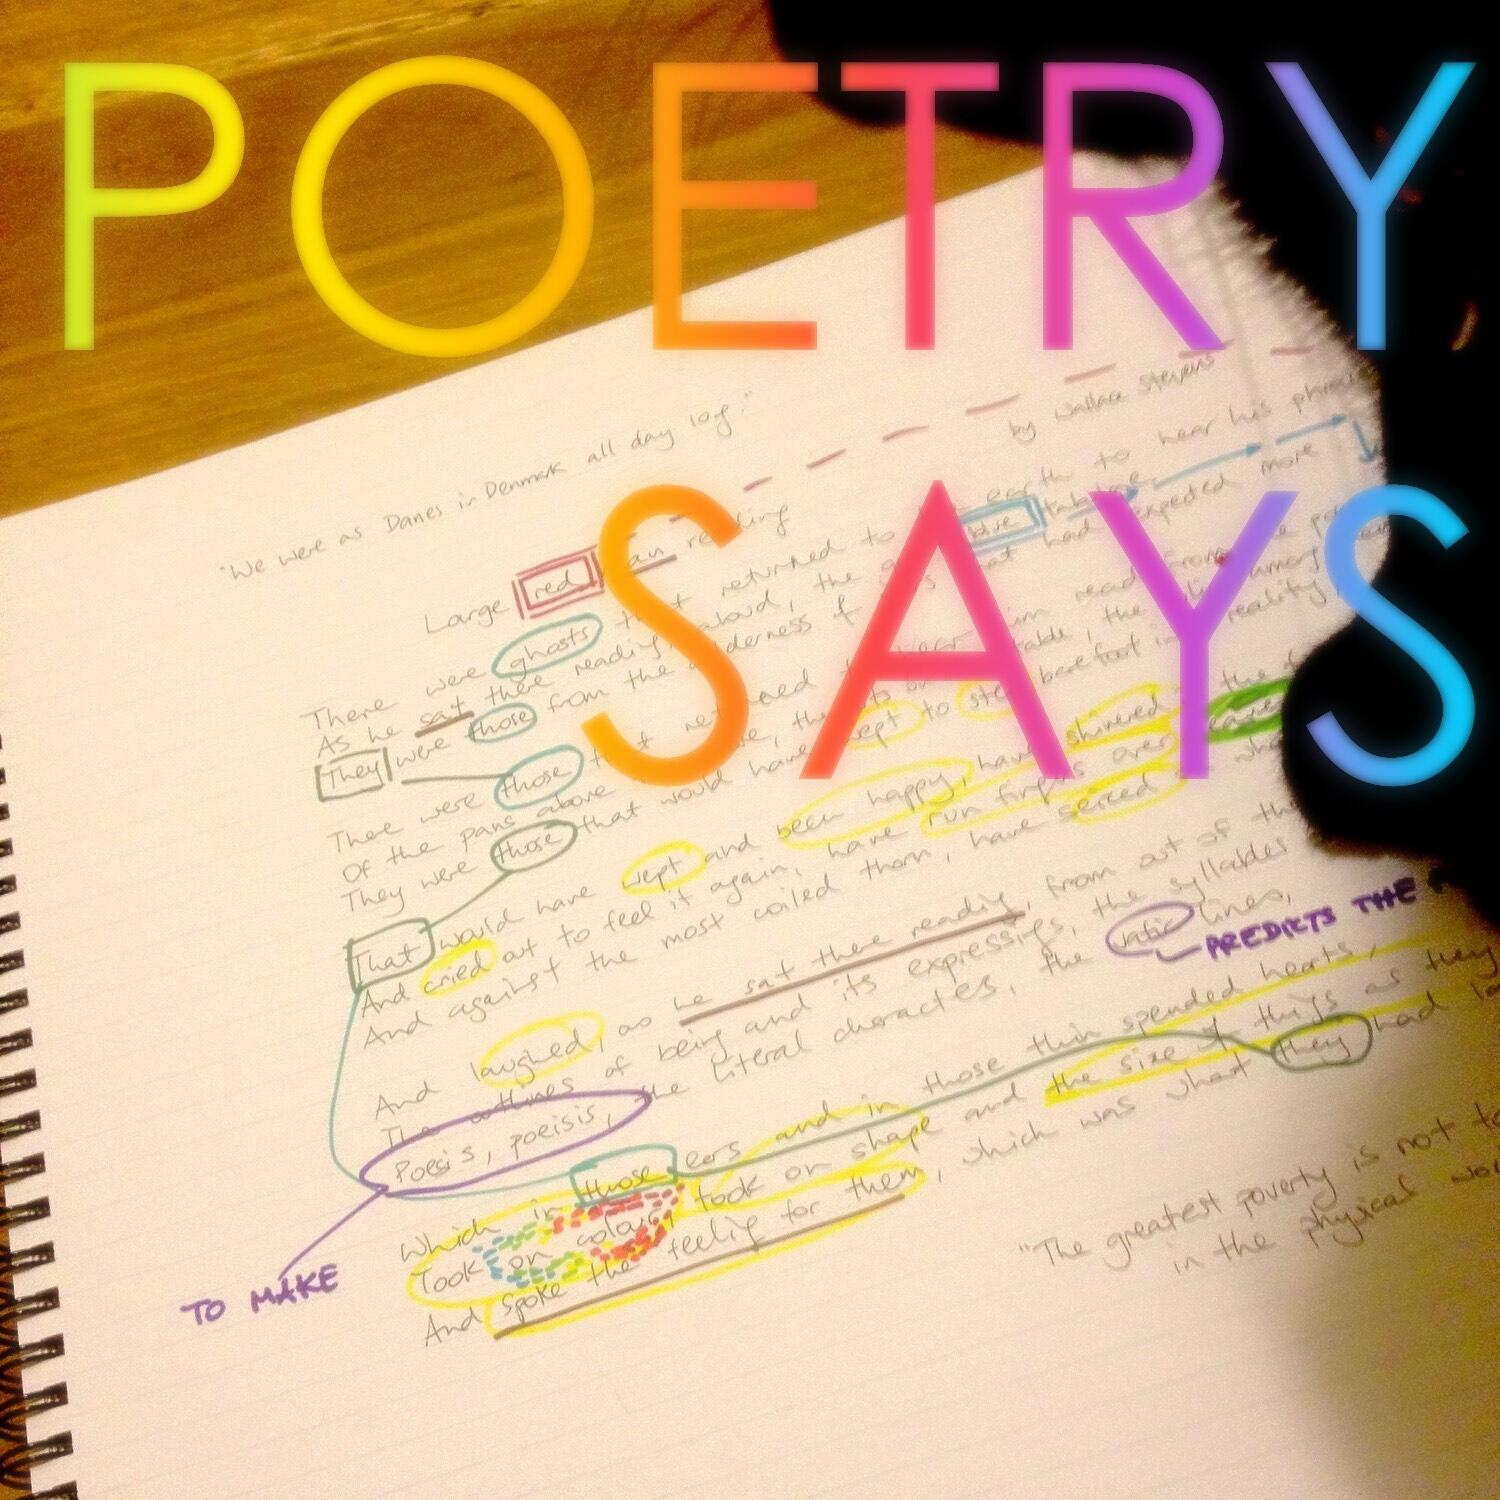 POETRY
SAYS
"We were as Danes in Denmark all day long."
by Wallace Stevens
Large red an reading
There were ghosts that returned to earth to hear his phras
As he sat there reading, aloud, the blue tabulae
They were those from the wilderness of that had expected more
There were those that ret ned to hear him read from the po
Of the pans above the among them
They were those that would have wept to step barefoot into reality
That would have wept and been happy, have shivered the f
And cried out to feel it again, have run fingers over leaves
And against the most coiled thorn, have seized
And laughed, as he sat there readig, from out of the
The outlines of being and its expressigs, the syllables
Poesis, poeisis, the literal characters, the vatic lines,
PREDICTS THE
Which in those ears and in those thin spended hearts,
Took on colour, took on shape and the size of things as they
And spoke the feelig for them, which was what they had la
TO MAKE
"The greatest poverty is not to
in the physical wor